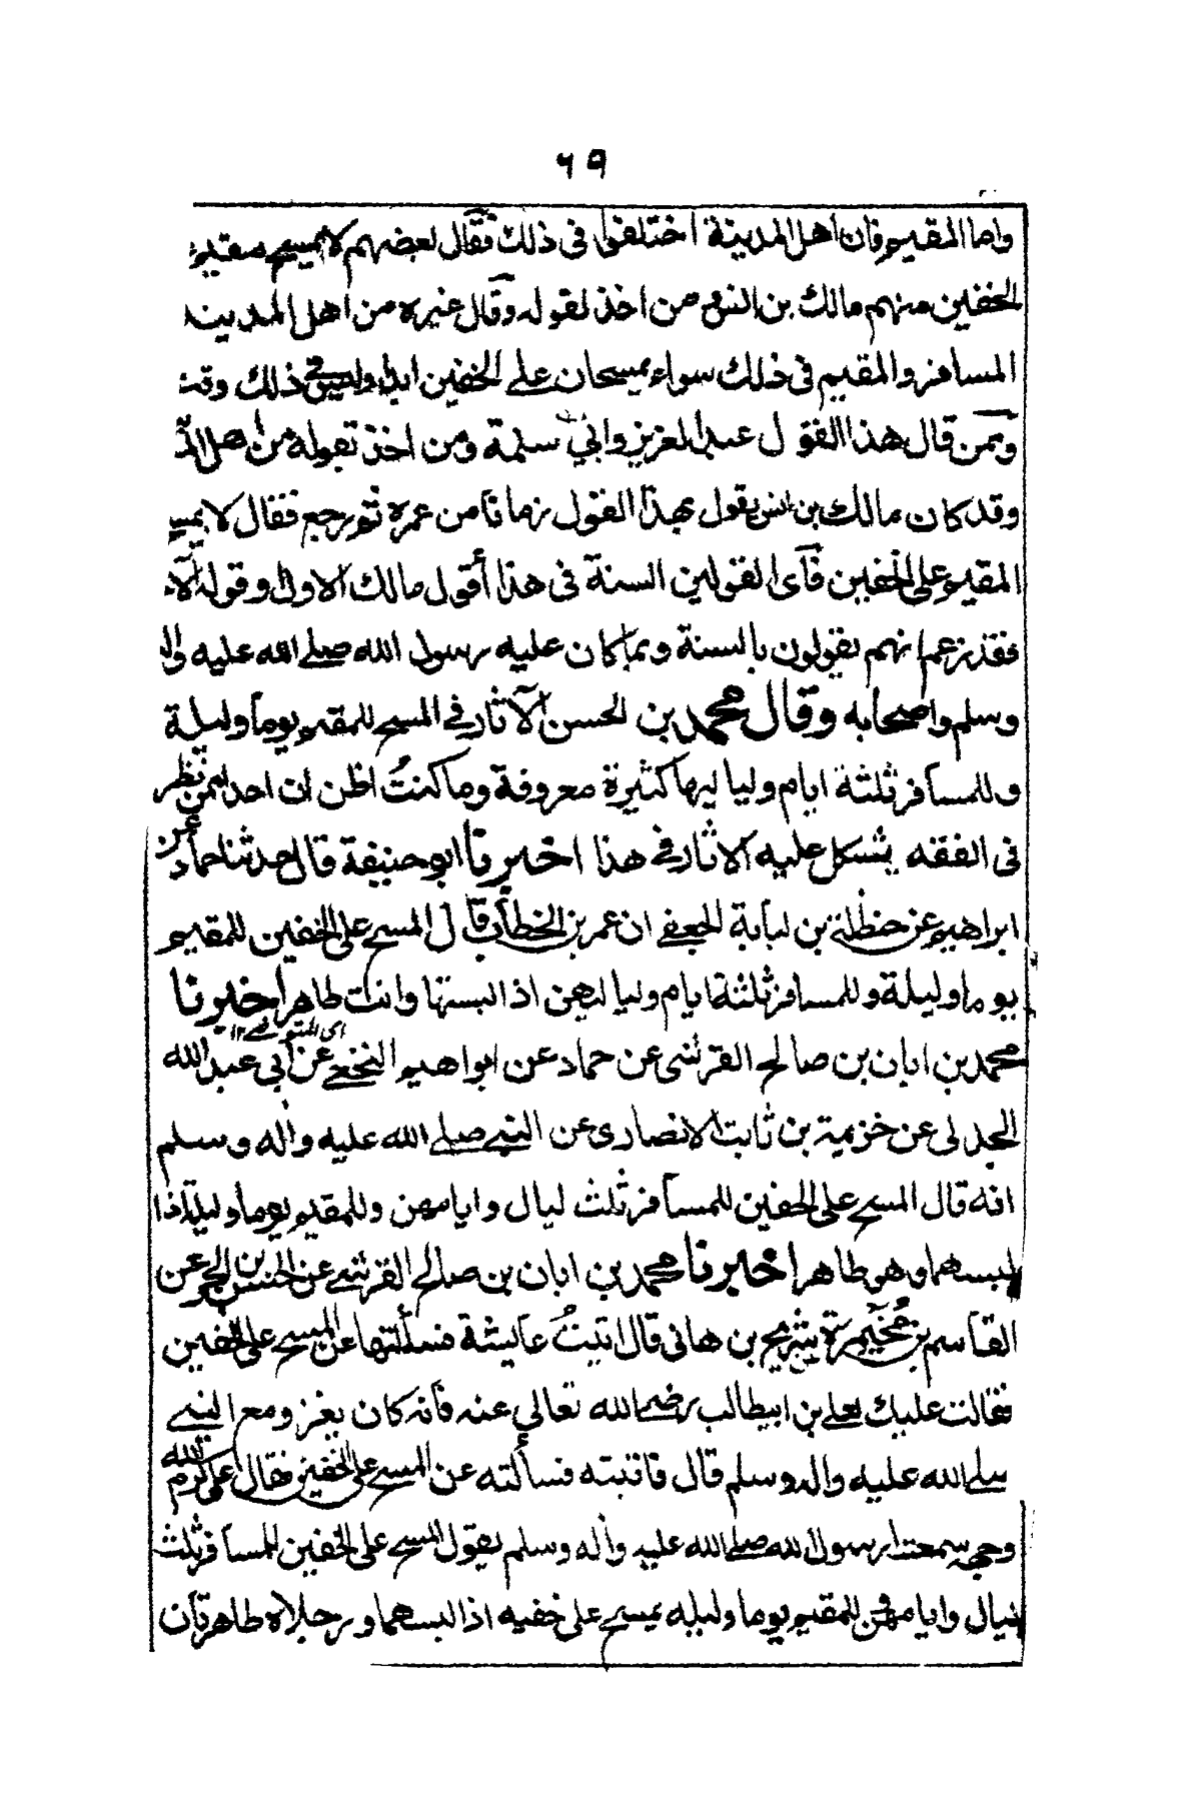 ٦٩
واما المقيم فان اهل المدينة اختلفوا في ذلك فقال بعضهم لا يمسح مقيم
الخفين منهم مالك بن انس ومن اخذ لقوله وقال غيره من اهل المدينة
المسافر والمقيم في ذلك سواء يمسحان على الخفين ابدا وليس في ذلك وقت
وممن قال هذا القول عبد العزيز وابي سلمة ومن اخذ بقوله من اهل
وقد كان مالك بن انس يقول بهذا القول زمانا من عمره ثم رجع فقال لا يمسح
المقيم على الخفين فأى القولين السنة في هذا أقول مالك الاول او قوله الآ
فقد زعم انهم يقولون بالسنة وبما كان عليه رسول الله صلى الله عليه واله
وسلم واصحابه وقال محمد بن الحسن الآثار في المسح للمقيم يوما وليلة
وللمسافر ثلثة ايام ولياليها كثيرة معروفة وما كنتُ اظن ان احدا ممن نظر
في الفقه يشكل عليه الاثار في هذا اخبرنا ابو حنيفة قال حدثنا حماد عن
ابراهيم عن حنظلة بن لبابة الجعفي ان عمر بن الخطاب قال المسح على الخفين للمقيم
يوما وليلة وللمسافر ثلثة ايام ولياليهن اذا لبستها وانت طاهر اخبرنا
اى المتوضى ١٢
محمد بن ابان بن صالح القرشى عن حماد عن ابراهيم النخعي عن أبي عبد الله
الجدلى عن خزيمة بن ثابت الانصارى عن النبي صلى الله عليه واله وسلم
انه قال المسح على الخفين للمسافر ثلث ليال وايامهن وللمقيم يوما وليلة اذا
لبسهما وهو طاهر اخبرنا محمد بن ابان بن صالح القرشي عن الحسن بن الحر عن
القاسم بن مُخَيمرة شريح بن هانى قال اتيتُ عايشة فسألتها عن المسح على الخفين
فقالت عليك بعلي بن ابيطالب رضي الله تعالى عنه فانه كان يغزو مع النبي
صلى الله عليه واله وسلم قال فاتيته فسألته عن المسح على الخفين فقال على كرم الله
وجهه سمعت رسول الله صلى الله عليه وأله وسلم يقول المسح على الخفين للمسافر ثلث
ليال وايامهن للمقيم يوما وليله يمسح على خفيه اذا لبسهما ورجلاه طاهرتان